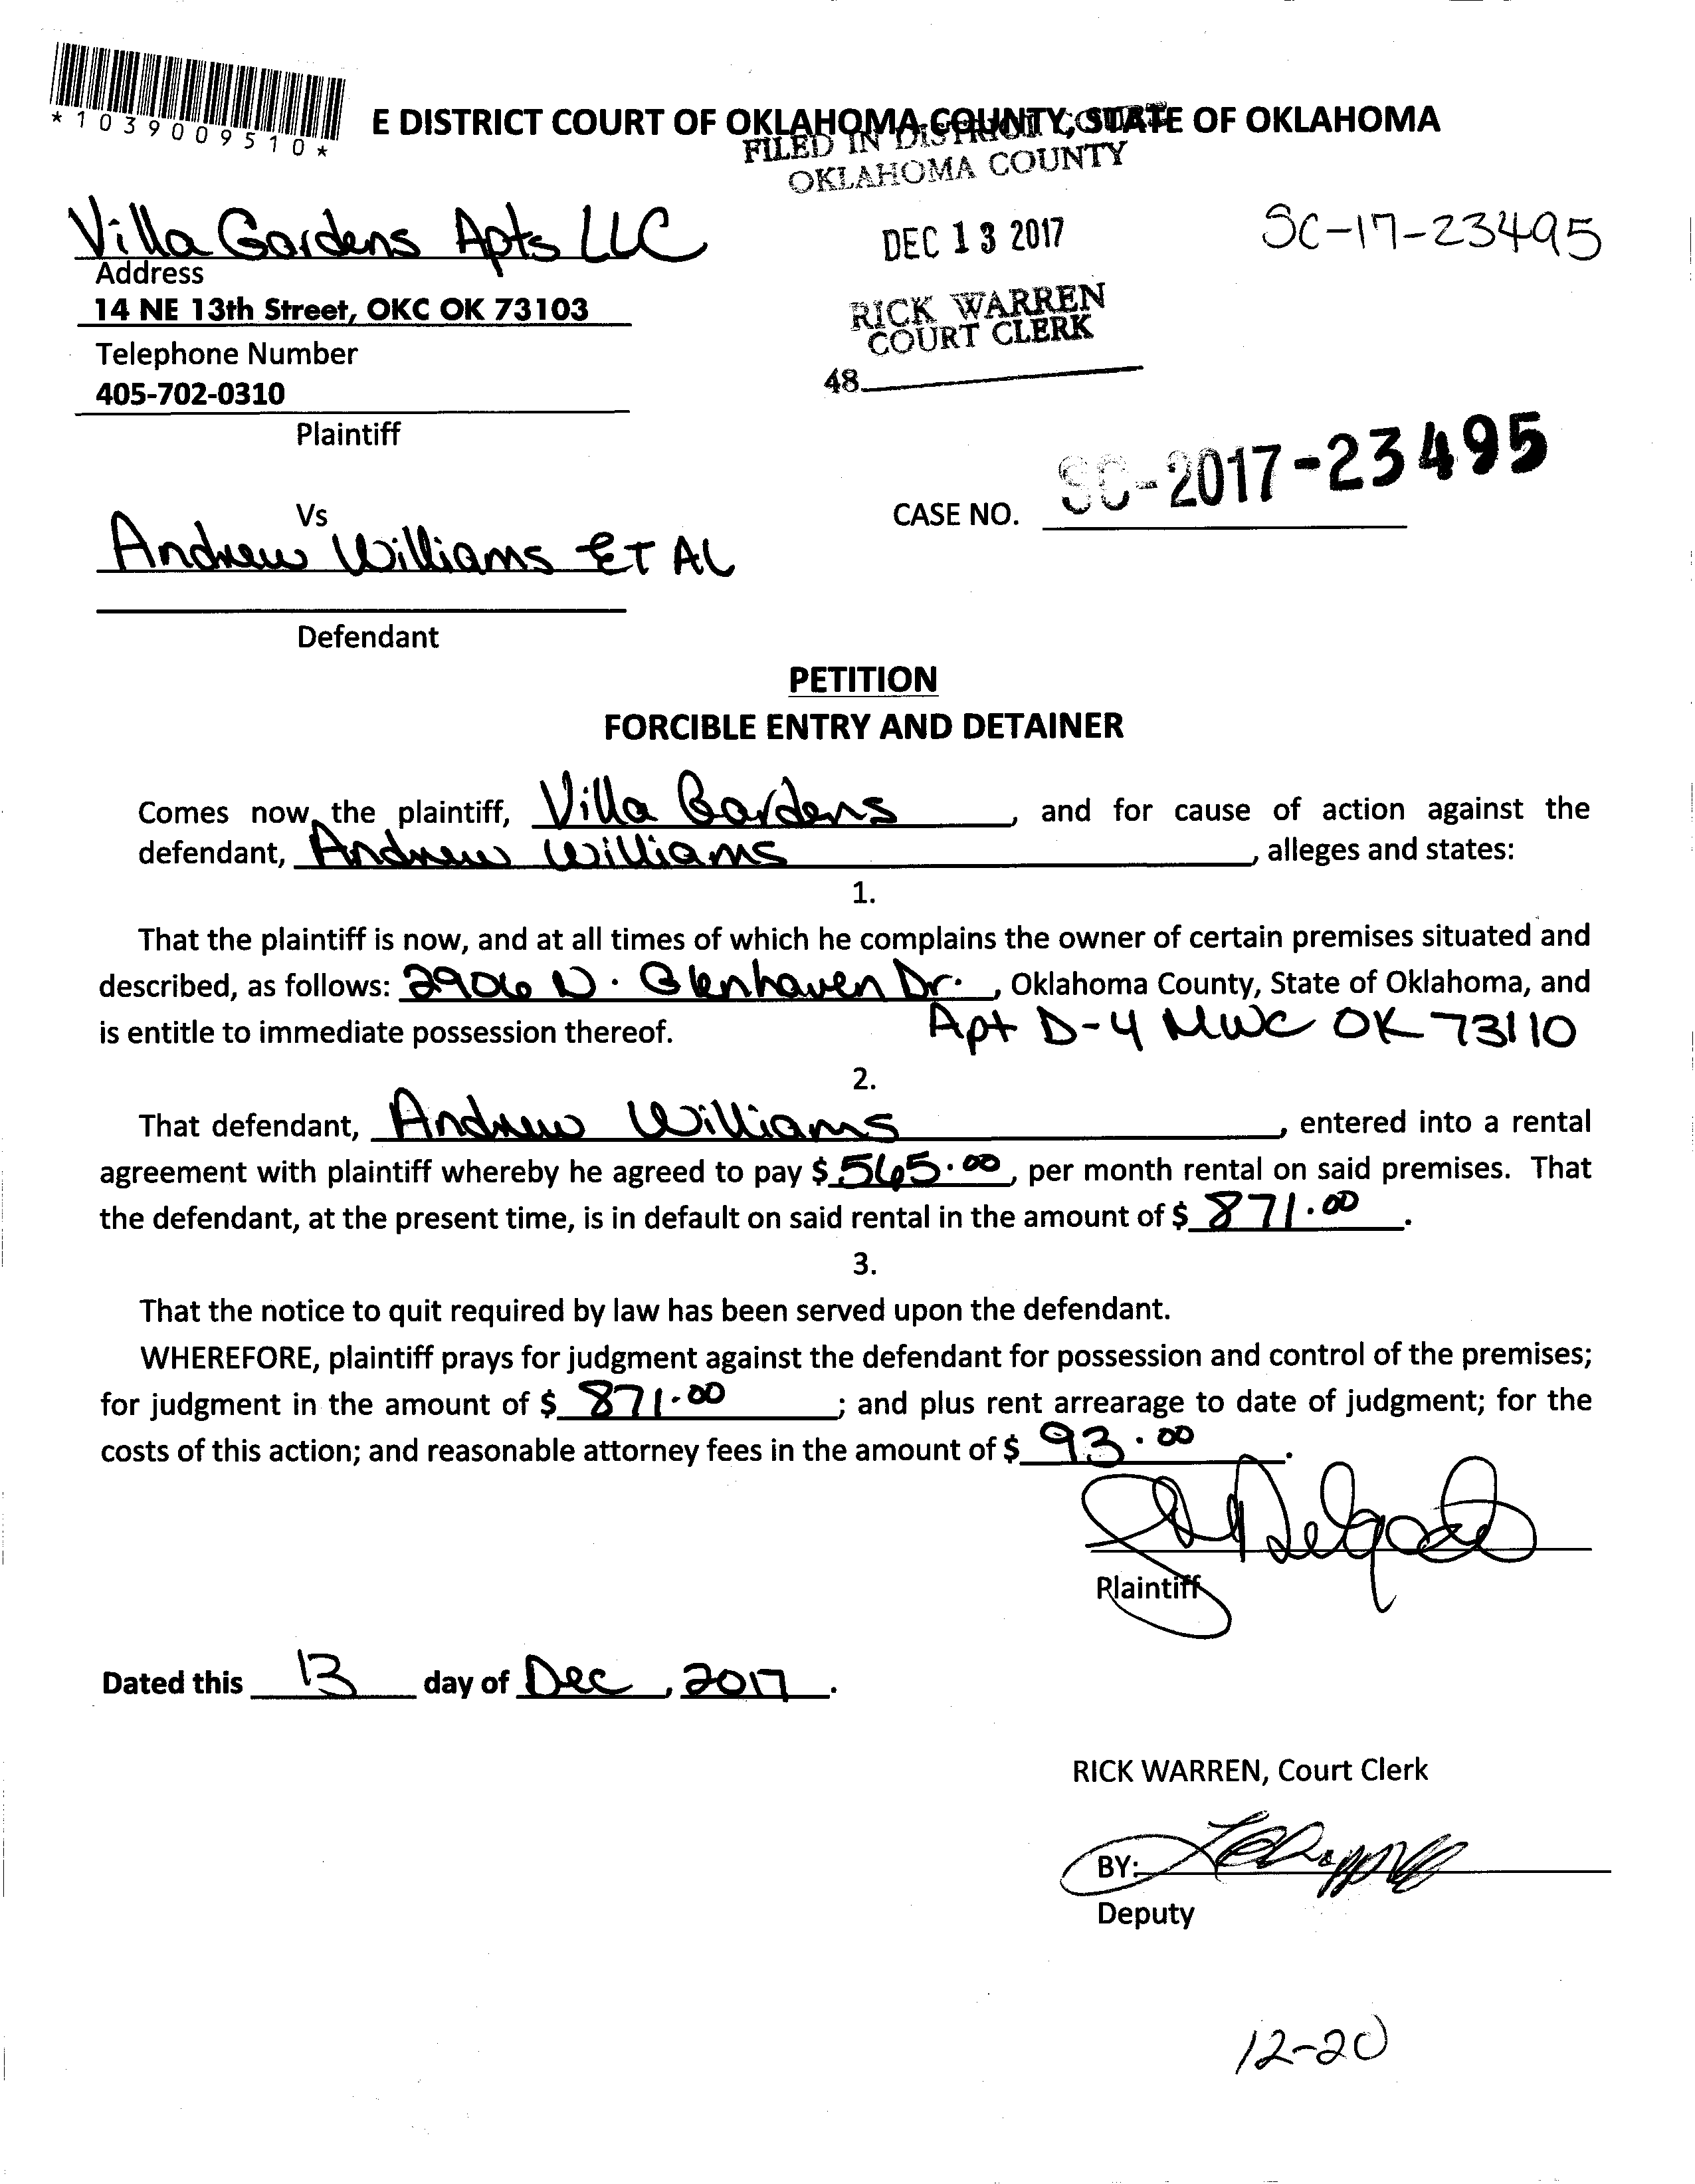 *1039009510*
E DISTRICT COURT OF OKLAHOMA COUNTY, STATE OF OKLAHOMA
FILED IN DISTRICT COURT
OKLAHOMA COUNTY
Villa Gardens Apts LLC
DEC 13 2017
SC-17-23495
Address
14 NE 13th Street, OKC OK 73103
RICK WARREN
COURT CLERK
Telephone Number
48
405-702-0310
Plaintiff
SC-2017-23495
Vs
CASE NO.
Andrew Williams ET AL
Defendant
PETITION
FORCIBLE ENTRY AND DETAINER
Comes now, the plaintiff, Villa Gardens, and for cause of action against the
defendant, Andrew Williams, alleges and states:
1.
That the plaintiff is now, and at all times of which he complains the owner of certain premises situated and
described, as follows: 2906 N. Glenhaven Dr., Oklahoma County, State of Oklahoma, and
is entitle to immediate possession thereof. Apt D-4 MWC OK 73110
2.
That defendant, Andrew Williams, entered into a rental
agreement with plaintiff whereby he agreed to pay $ 565.00, per month rental on said premises. That
the defendant, at the present time, is in default on said rental in the amount of $ 871.00.
3.
That the notice to quit required by law has been served upon the defendant.
WHEREFORE, plaintiff prays for judgment against the defendant for possession and control of the premises;
for judgment in the amount of $ 871.00; and plus rent arrearage to date of judgment; for the
costs of this action; and reasonable attorney fees in the amount of $ 93.00.
Delgado
Plaintiff
Dated this 13 day of Dec, 2017.
RICK WARREN, Court Clerk
BY:
Deputy
12-20